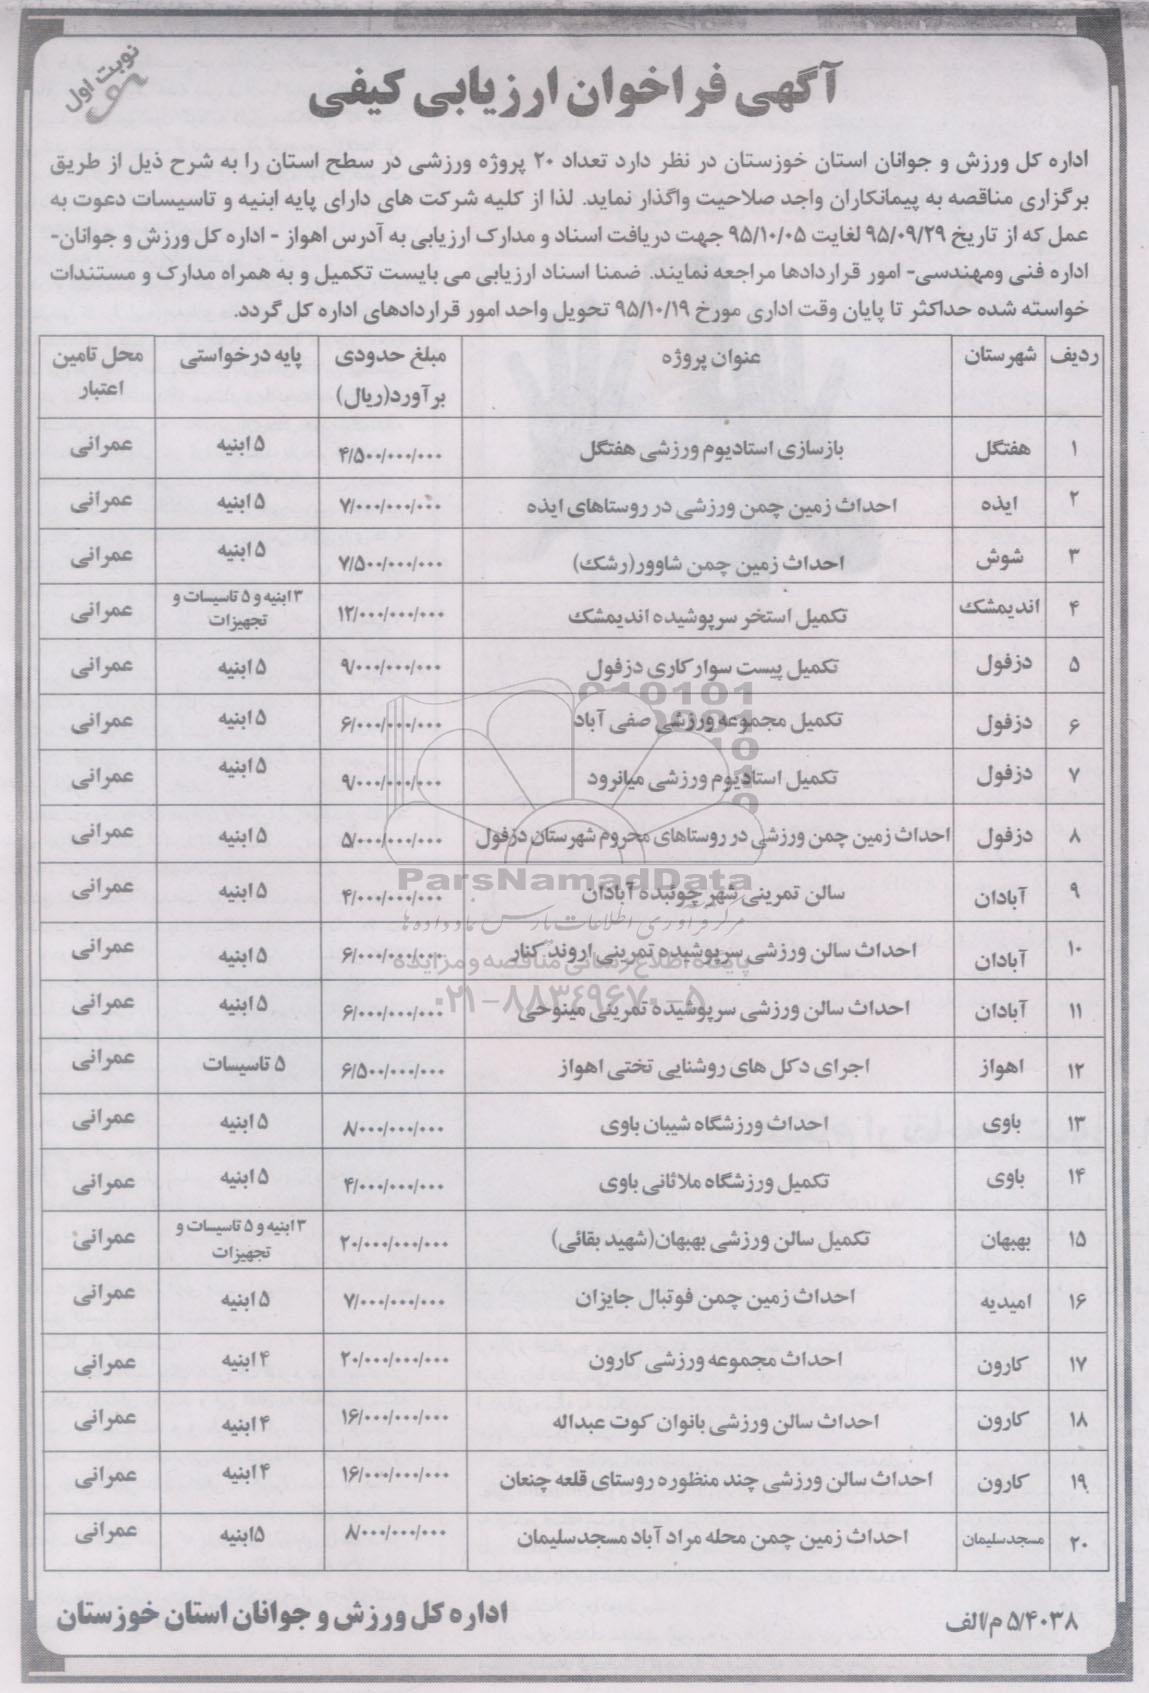 نوبت اول
آگهی فراخوان ارزیابی کیفی
اداره کل ورزش و جوانان استان خوزستان در نظر دارد تعداد ۲۰ پروژه ورزشی در سطح استان را به شرح ذیل از طریق
برگزاری مناقصه به پیمانکاران واجد صلاحیت واگذار نماید. لذا از کلیه شرکت های دارای پایه ابنیه و تاسیسات دعوت به
عمل که از تاریخ ۹۵/۰۹/۲۹ لغایت ۹۵/۱۰/۰۵ جهت دریافت اسناد و مدارک ارزیابی به آدرس اهواز - اداره کل ورزش و جوانان-
اداره فنی ومهندسی- امور قراردادها مراجعه نمایند. ضمنا اسناد ارزیابی می بایست تکمیل و به همراه مدارک و مستندات
خواسته شده حداکثر تا پایان وقت اداری مورخ ۹۵/۱۰/۱۹ تحویل واحد امور قراردادهای اداره کل گردد.
ردیف شهرستان عنوان پروژه مبلغ حدودی برآورد(ریال) پایه درخواستی محل تامین اعتبار
۱ هفتگل بازسازی استادیوم ورزشی هفتگل ۴/۵۰۰/۰۰۰/۰۰۰ ۵ ابنیه عمرانی
۲ ایذه احداث زمین چمن ورزشی در روستاهای ایذه ۷/۰۰۰/۰۰۰/۰۰۰ ۵ ابنیه عمرانی
۳ شوش احداث زمین چمن شاوور(رشک) ۷/۵۰۰/۰۰۰/۰۰۰ ۵ ابنیه عمرانی
۴ اندیمشک تکمیل استخر سرپوشیده اندیمشک ۱۲/۰۰۰/۰۰۰/۰۰۰ ۳ ابنیه و ۵ تاسیسات و تجهیزات عمرانی
۵ دزفول تکمیل پیست سوارکاری دزفول ۹/۰۰۰/۰۰۰/۰۰۰ ۵ ابنیه عمرانی
۶ دزفول تکمیل مجموعه ورزشی صفی آباد ۶/۰۰۰/۰۰۰/۰۰۰ ۵ ابنیه عمرانی
۷ دزفول تکمیل استادیوم ورزشی میانرود ۹/۰۰۰/۰۰۰/۰۰۰ ۵ ابنیه عمرانی
۸ دزفول احداث زمین چمن ورزشی در روستاهای محروم شهرستان دزفول ۵/۰۰۰/۰۰۰/۰۰۰ ۵ ابنیه عمرانی
۹ آبادان سالن تمرینی شهر چوئبده آبادان ۴/۰۰۰/۰۰۰/۰۰۰ ۵ ابنیه عمرانی
۱۰ آبادان احداث سالن ورزشی سرپوشیده تمرینی اروند کنار ۶/۰۰۰/۰۰۰/۰۰۰ ۵ ابنیه عمرانی
۱۱ آبادان احداث سالن ورزشی سرپوشیده تمرینی مینوحی ۶/۰۰۰/۰۰۰/۰۰۰ ۵ ابنیه عمرانی
۱۲ اهواز اجرای دکل های روشنایی تختی اهواز ۶/۵۰۰/۰۰۰/۰۰۰ ۵ تاسیسات عمرانی
۱۳ باوی احداث ورزشگاه شیبان باوی ۸/۰۰۰/۰۰۰/۰۰۰ ۵ ابنیه عمرانی
۱۴ باوی تکمیل ورزشگاه ملاثانی باوی ۴/۰۰۰/۰۰۰/۰۰۰ ۵ ابنیه عمرانی
۱۵ بهبهان تکمیل سالن ورزشی بهبهان(شهید بقائی) ۲۰/۰۰۰/۰۰۰/۰۰۰ ۳ ابنیه و ۵ تاسیسات و تجهیزات عمرانی
۱۶ امیدیه احداث زمین چمن فوتبال جایزان ۷/۰۰۰/۰۰۰/۰۰۰ ۵ ابنیه عمرانی
۱۷ کارون احداث مجموعه ورزشی کارون ۲۰/۰۰۰/۰۰۰/۰۰۰ ۴ ابنیه عمرانی
۱۸ کارون احداث سالن ورزشی بانوان کوت عبداله ۱۶/۰۰۰/۰۰۰/۰۰۰ ۴ ابنیه عمرانی
۱۹ کارون احداث سالن ورزشی چند منظوره روستای قلعه چنعان ۱۶/۰۰۰/۰۰۰/۰۰۰ ۴ ابنیه عمرانی
۲۰ مسجدسلیمان احداث زمین چمن محله مراد آباد مسجدسلیمان ۸/۰۰۰/۰۰۰/۰۰۰ ۵ابنیه عمرانی
۵/۴۰۳۸ م/الف
اداره کل ورزش و جوانان استان خوزستان
ParsNamadData
مرکز فرآوری اطلاعات پارس نماد داده ها
پایگاه اطلاع رسانی مناقصه و مزایده
۰۲۱-۸۸۳۴۹۶۷۰-۵